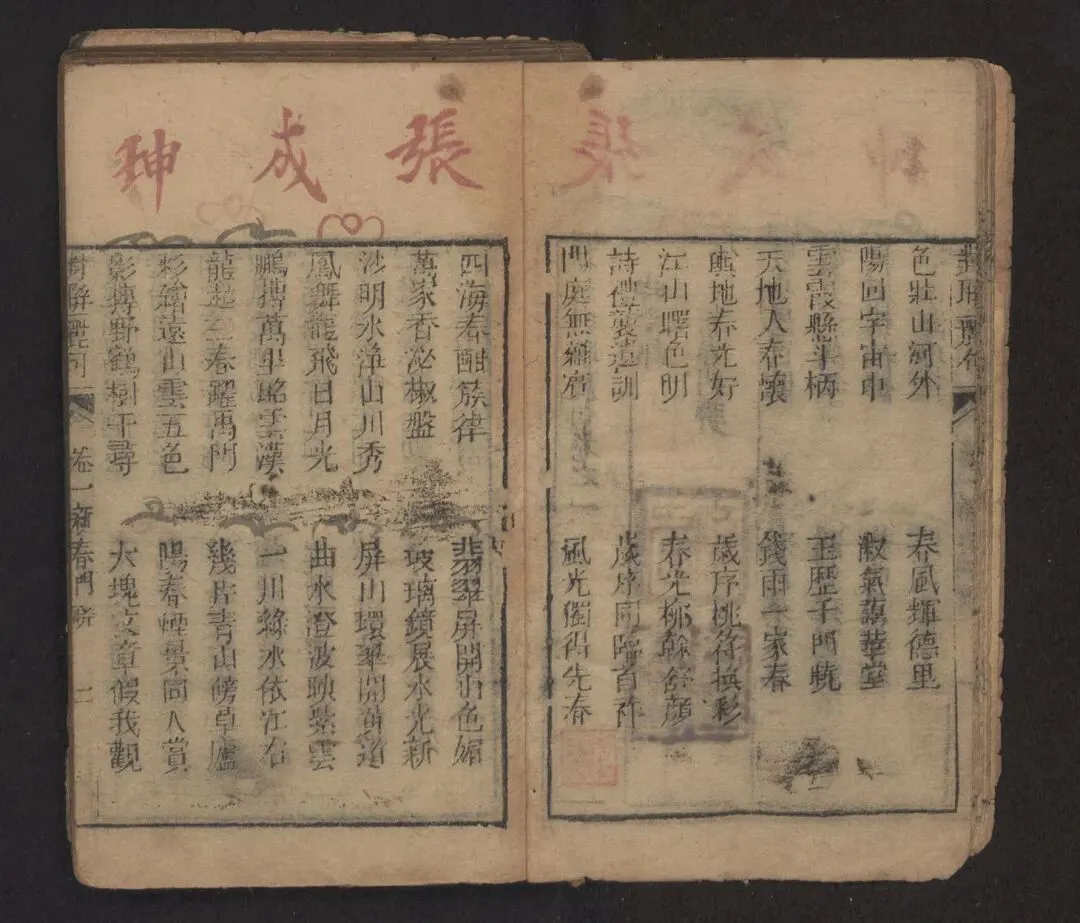 對聯麗句
色壯山河外
春風輝德里
陽回宇宙中
淑氣藹華堂
雲霞縣斗柄
玉歷千門曉
天地人春懷
錢雨一家春
輿地春光好
歲序桃符換彩
江山曙色明
春光柳幹舒顏
詩禮裳遺訓
歲序同臨首祚
門庭無
風光獨得先春
張成珅
四海春酣簇律
翡翠屏開山色媚
萬家香泌椒盤
玻璃鏡展水光新
沙明水淨山川秀
屏山環翠開黃道
鳳舞龍飛日月光
曲水澄波映紫雲
鵬摶萬里昭雲漢
一川綠水依江右
龍起三春躍禹門
幾片青山傍草廬
彩繪遠山雲五色
陽春煙景同人賞
影摶野鶴樹千尋
大塊文章假我觀
對聯麗句
卷一新春門
二